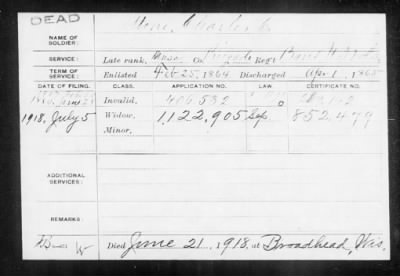 DEAD
Charles
NAME OF SOLDIER:
SERVICE: Late rank, Co. Brigade Reg't Band
TERM OF SERVICE: Enlisted Feb 25, 1864 Discharged Apr 1, 1865
DATE OF FILING. CLASS. APPLICATION NO. LAW CERTIFICATE NO.
Invalid. 406,532
1918, July 5 Widow, 1,122,905 852,479
Minor.
ADDITIONAL SERVICES:
REMARKS:
Died June 21, 1918, at Brodhead, Wis.